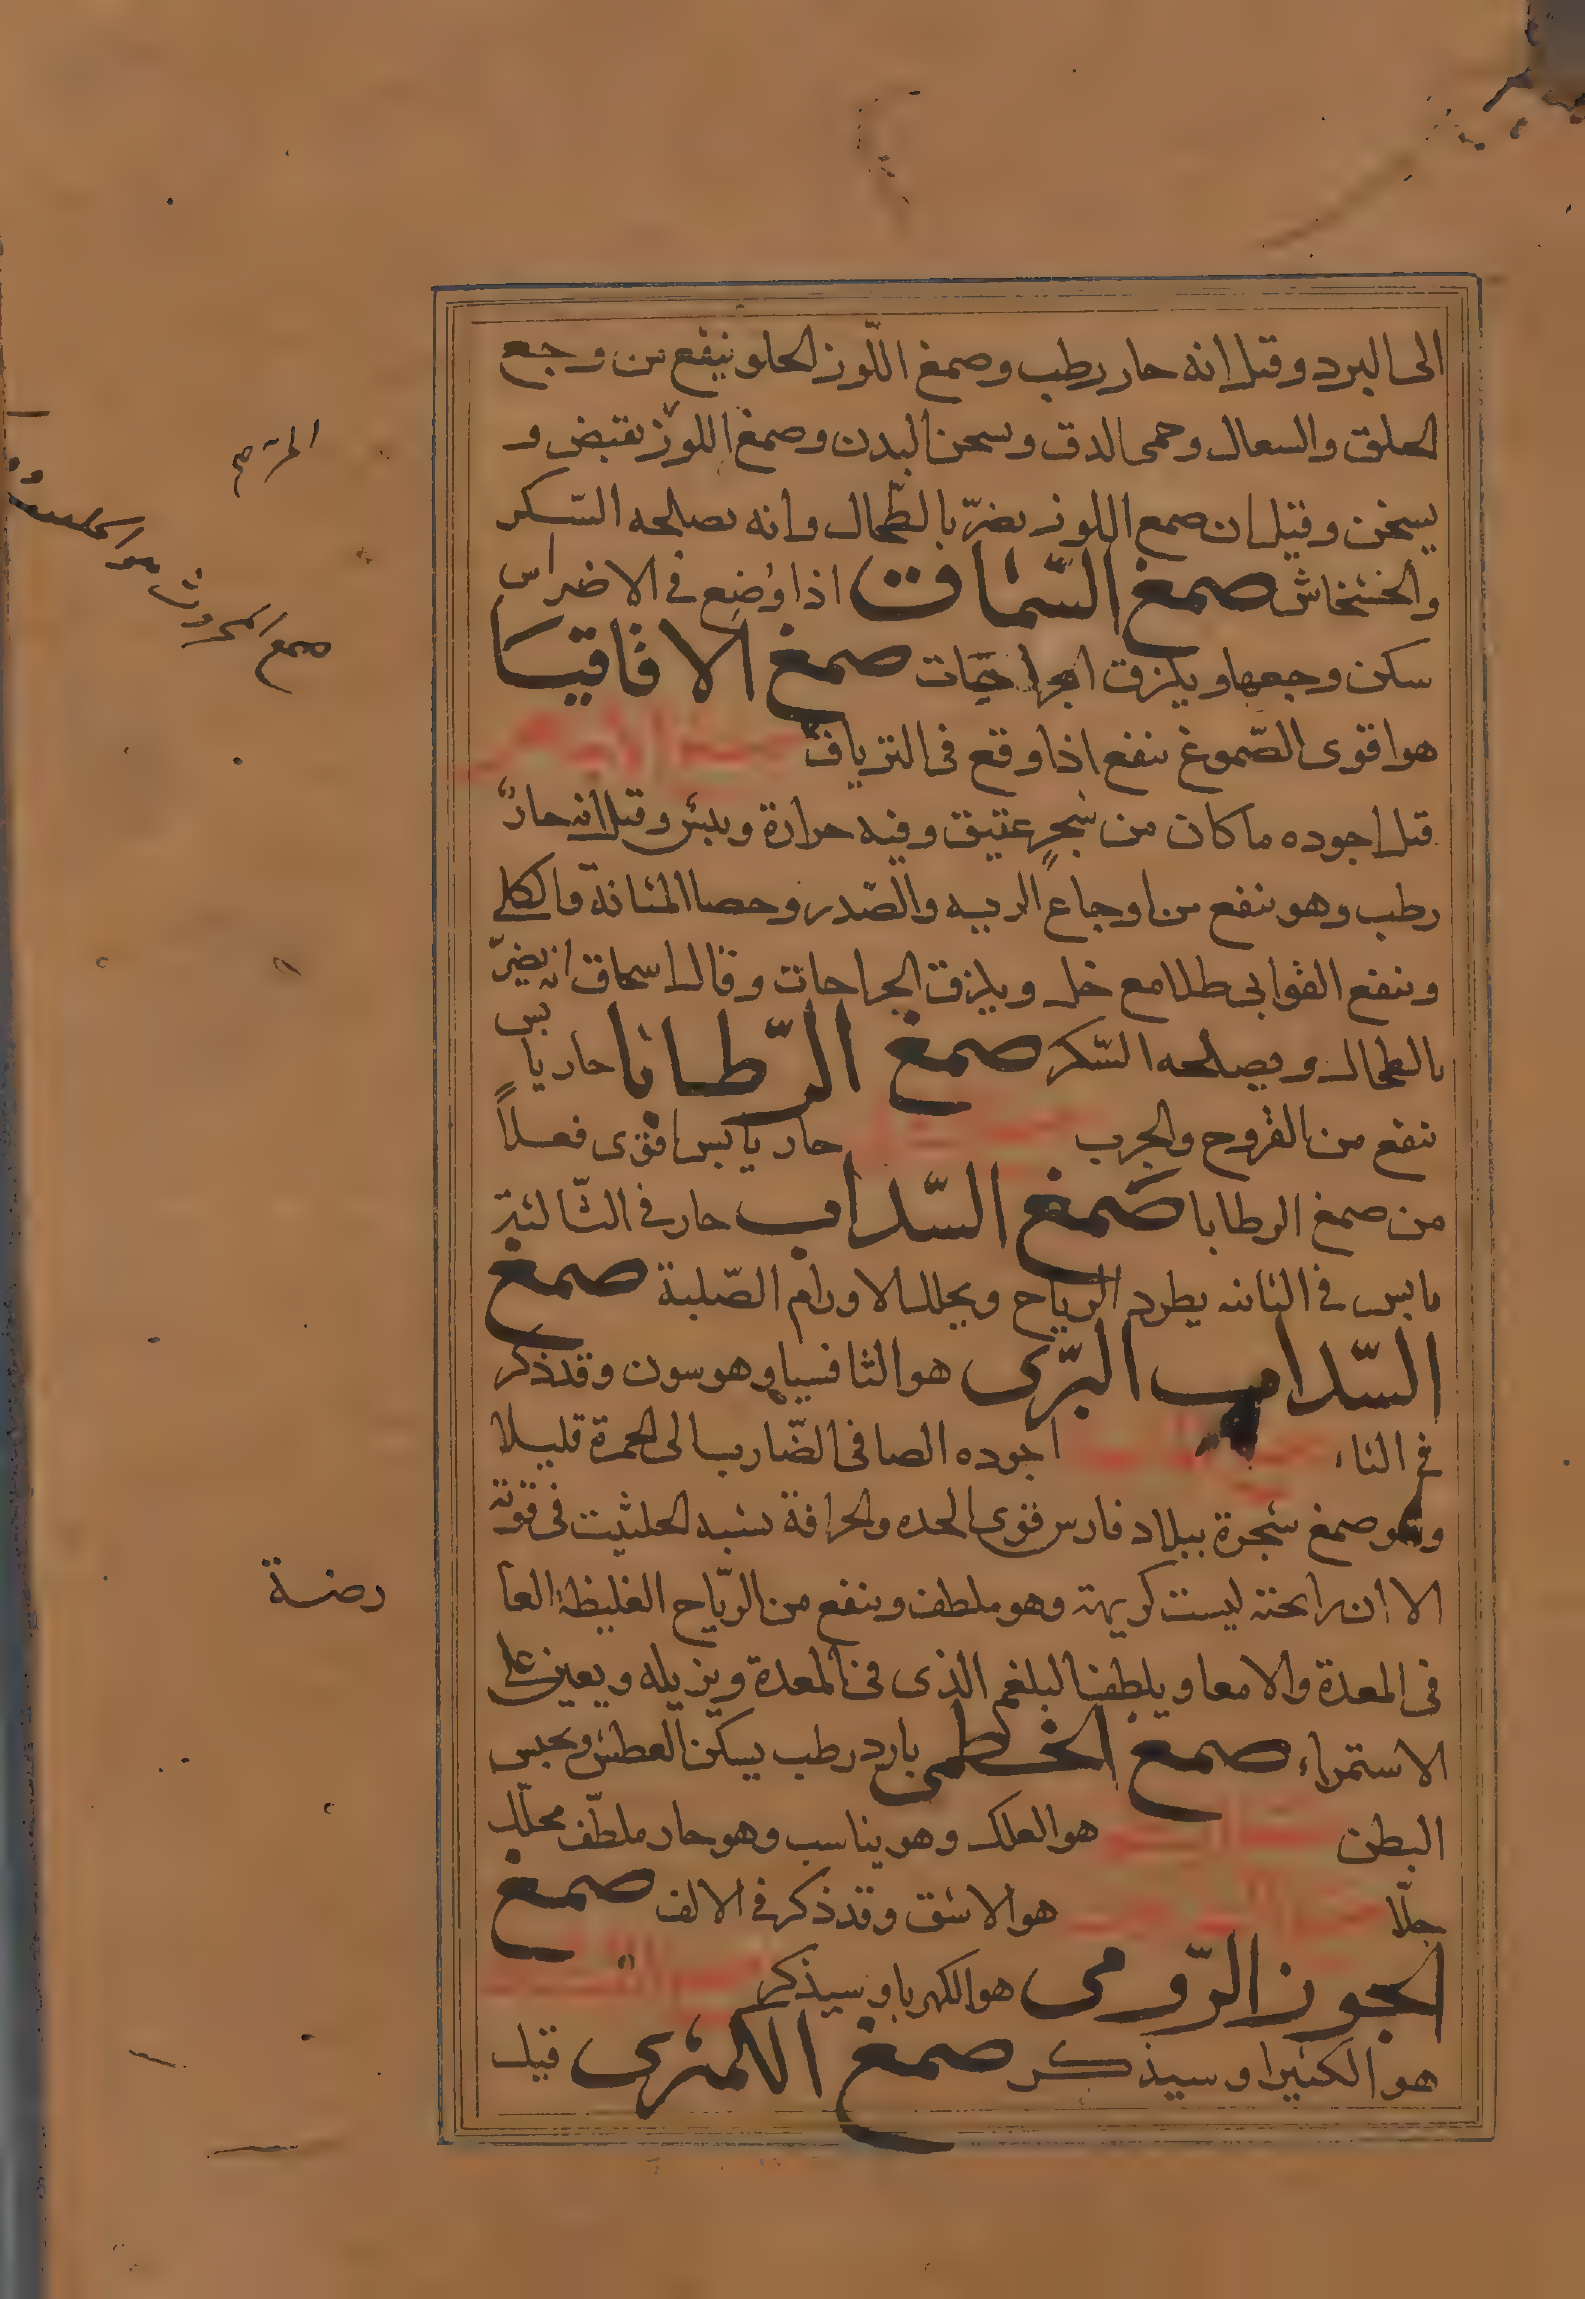 الى البرد وقيل انه حار رطب وصمغ اللّوز الحلو ينفع من وجع
الحلق والسعال وحمى الدق ويسمن البدن وصمغ اللوز يقبض و
يسخن وقيل ان صمغ اللوز يضرّ بالطّحال وانه يصلحه السّكر
والخشخاش صمغ السّماق اذا وُضِع في الاضراس
سكن وجعها ويلزق الجراحات صمغ الاقاقيا
هو اقوى الصّموغ ينفع اذا وقع في الترياق
قيل اجوده ما كان من شجرٍ عتيق وفيه حرارة ويبس وقيل انه حارّ
رطب وهو ينفع من اوجاع الريه والصّدر وحصا المثانة والكلى
وينفع القوابي طلا مع خل ويلزق الجراحات وقال اسحاق انه يضرّ
بالطحال ويصلحه السّكر صمغ الرّطابا حار يابس
ينفع من القروح والجرب حار يابس اقوى فعلاً
من صمغ الرطابا صَمغ السّداب حار في الثّالثة
يابس في الثانيه يطرد الرياح ويحلل الاورام الصّلبة صمغ
السّداب البرّى هو الثافسيا وهو سون وقد ذكر
في الثاء اجوده الصافى الضّارب الى الحمرة قليلا
وهو صمغ شجرة ببلاد فارس قوى الحده والحرافة يشبه الحلتيت في قوته
الا ان رائحته ليست كريهة وهو ملطف وينفع من الرّياح الغليظة العا
رضة
في المعدة والامعا ويلطف البلغم الذى في المعدة ويزيله ويعين على
الاستمراء صمغ الخطمى بارد رطب يسكن العطش ويحبس
البطن هو العلك وهو يناسب وهو حار ملطّف محلّل
جلّا هو الاشق وقد ذكر في الالف صمغ
الجوز الرّومى هو الكهربا وسيذكر
هو الكثيرا وسيذكر صمغ الكمثرى قيل
صمغ المحروث هو الحلتيت